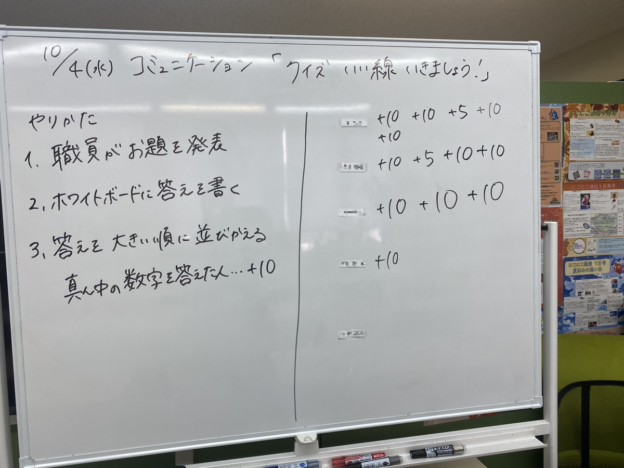 10/4(水) コミュニケーション 「クイズ いい線いきましょう!」
やりかた
1. 職員がお題を発表
2. ホワイトボードに答えを書く
3. 答えを大きい順に並びかえる
真ん中の数字を答えた人…+10
+10 +10 +5 +10
+10
+10 +5 +10 +10
+10 +10 +10
+10